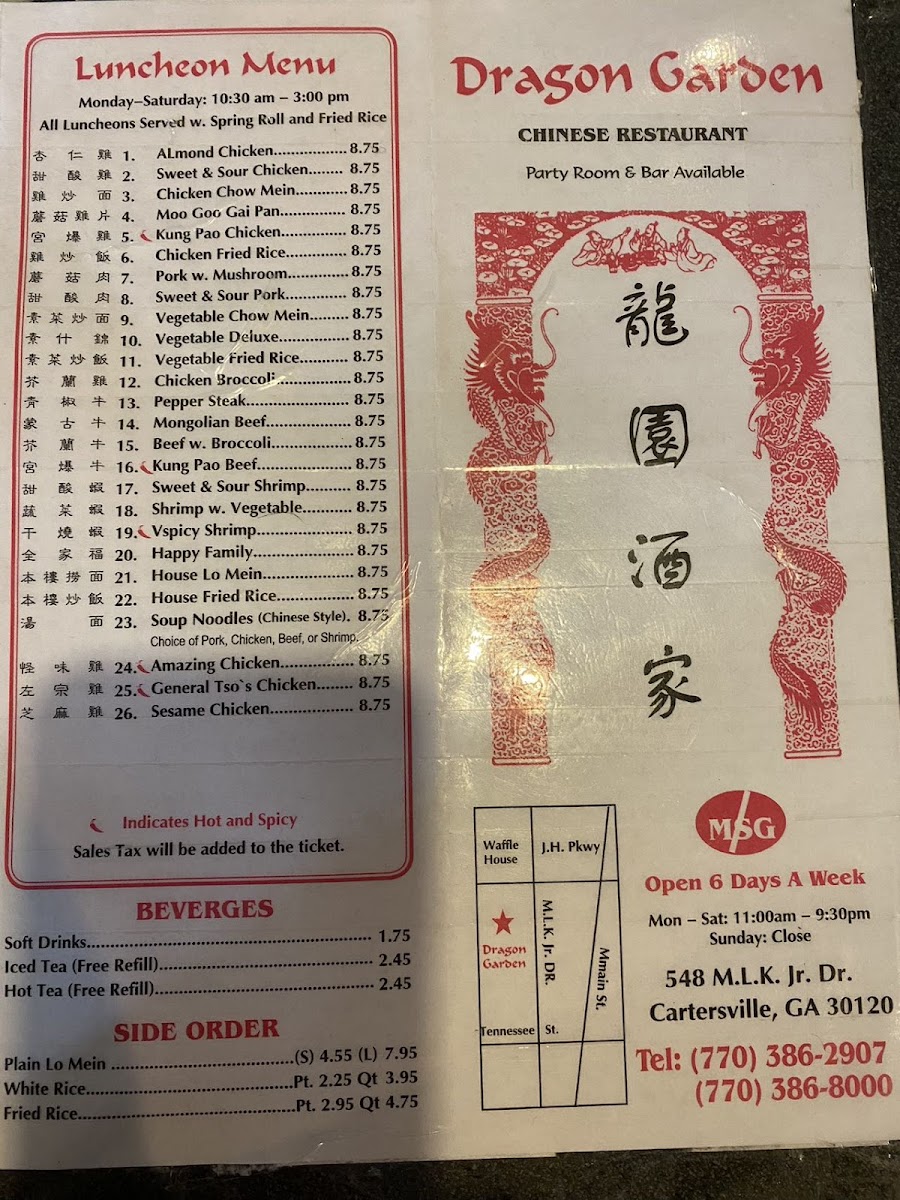 Luncheon Menu
Monday–Saturday: 10:30 am – 3:00 pm
All Luncheons Served w. Spring Roll and Fried Rice
杏仁雞 1. ALmond Chicken.................8.75
甜酸雞 2. Sweet & Sour Chicken........ 8.75
雞炒面 3. Chicken Chow Mein............8.75
蘑菇雞片 4. Moo Goo Gai Pan............... 8.75
宮爆雞 5. Kung Pao Chicken............... 8.75
雞炒飯 6. Chicken Fried Rice.............. 8.75
蘑菇肉 7. Pork w. Mushroom..............8.75
甜酸肉 8. Sweet & Sour Pork.............. 8.75
素菜炒面 9. Vegetable Chow Mein......... 8.75
素什錦 10. Vegetable Deluxe................8.75
素菜炒飯 11. Vegetable Fried Rice........... 8.75
芥蘭雞 12. Chicken Broccoli.................8.75
青椒牛 13. Pepper Steak....................... 8.75
蒙古牛 14. Mongolian Beef................... 8.75
芥蘭牛 15. Beef w. Broccoli.................. 8.75
宮爆牛 16. Kung Pao Beef..................... 8.75
甜酸蝦 17. Sweet & Sour Shrimp.......... 8.75
蔬菜蝦 18. Shrimp w. Vegetable........... 8.75
干燒蝦 19. Vspicy Shrimp..................... 8.75
全家福 20. Happy Family...................... 8.75
本樓撈面 21. House Lo Mein.................... 8.75
本樓炒飯 22. House Fried Rice................. 8.75
湯面 23. Soup Noodles (Chinese Style). 8.75
Choice of Pork, Chicken, Beef, or Shrimp.
怪味雞 24. Amazing Chicken................ 8.75
左宗雞 25. General Tso`s Chicken........ 8.75
芝麻雞 26. Sesame Chicken.................. 8.75
Indicates Hot and Spicy
Sales Tax will be added to the ticket.
BEVERGES
Soft Drinks.................................................... 1.75
Iced Tea (Free Refill)....................................... 2.45
Hot Tea (Free Refill)........................................ 2.45
SIDE ORDER
Plain Lo Mein .................................(S) 4.55 (L) 7.95
White Rice.....................................Pt. 2.25 Qt 3.95
Fried Rice.......................................Pt. 2.95 Qt 4.75
Dragon Garden
CHINESE RESTAURANT
Party Room & Bar Available
龍
園
酒
家
Waffle
House
J.H. Pkwy
Dragon
Garden
M.L.K. Jr. DR.
Mmain St.
Tennessee St.
MSG
Open 6 Days A Week
Mon – Sat: 11:00am – 9:30pm
Sunday: Close
548 M.L.K. Jr. Dr.
Cartersville, GA 30120
Tel: (770) 386-2907
(770) 386-8000